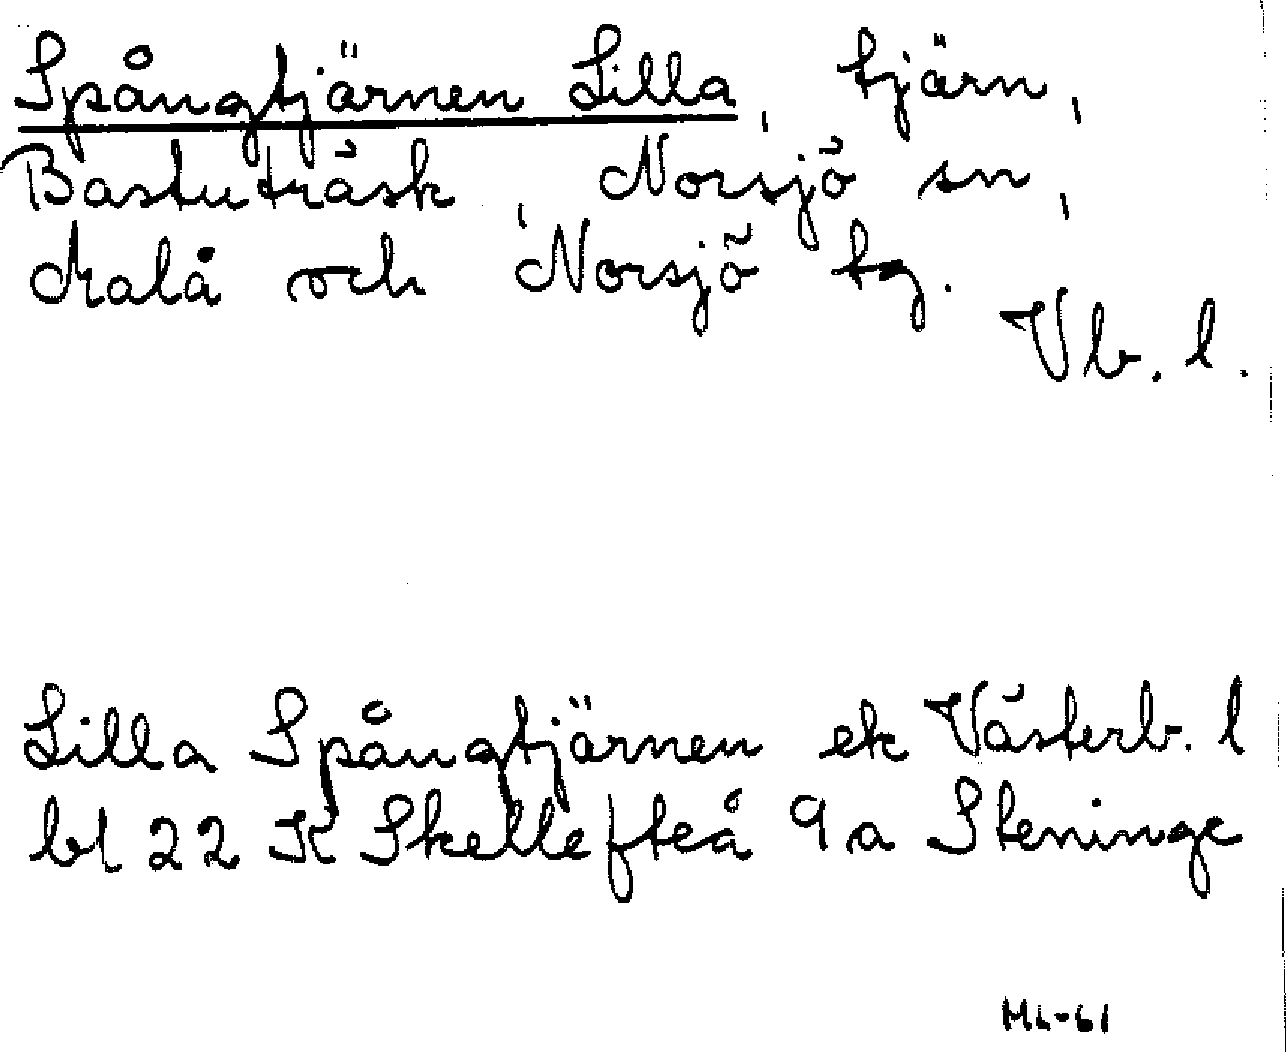 Spångtjärnen Lilla, tjärn,
Bastuträsk, Norsjö sn,
Malå och Norsjö tg.
Vb. l.
Lilla Spångtjärnen ek Västerb. l
bl 22 K Skellefteå 9 a Steninge
ML-61